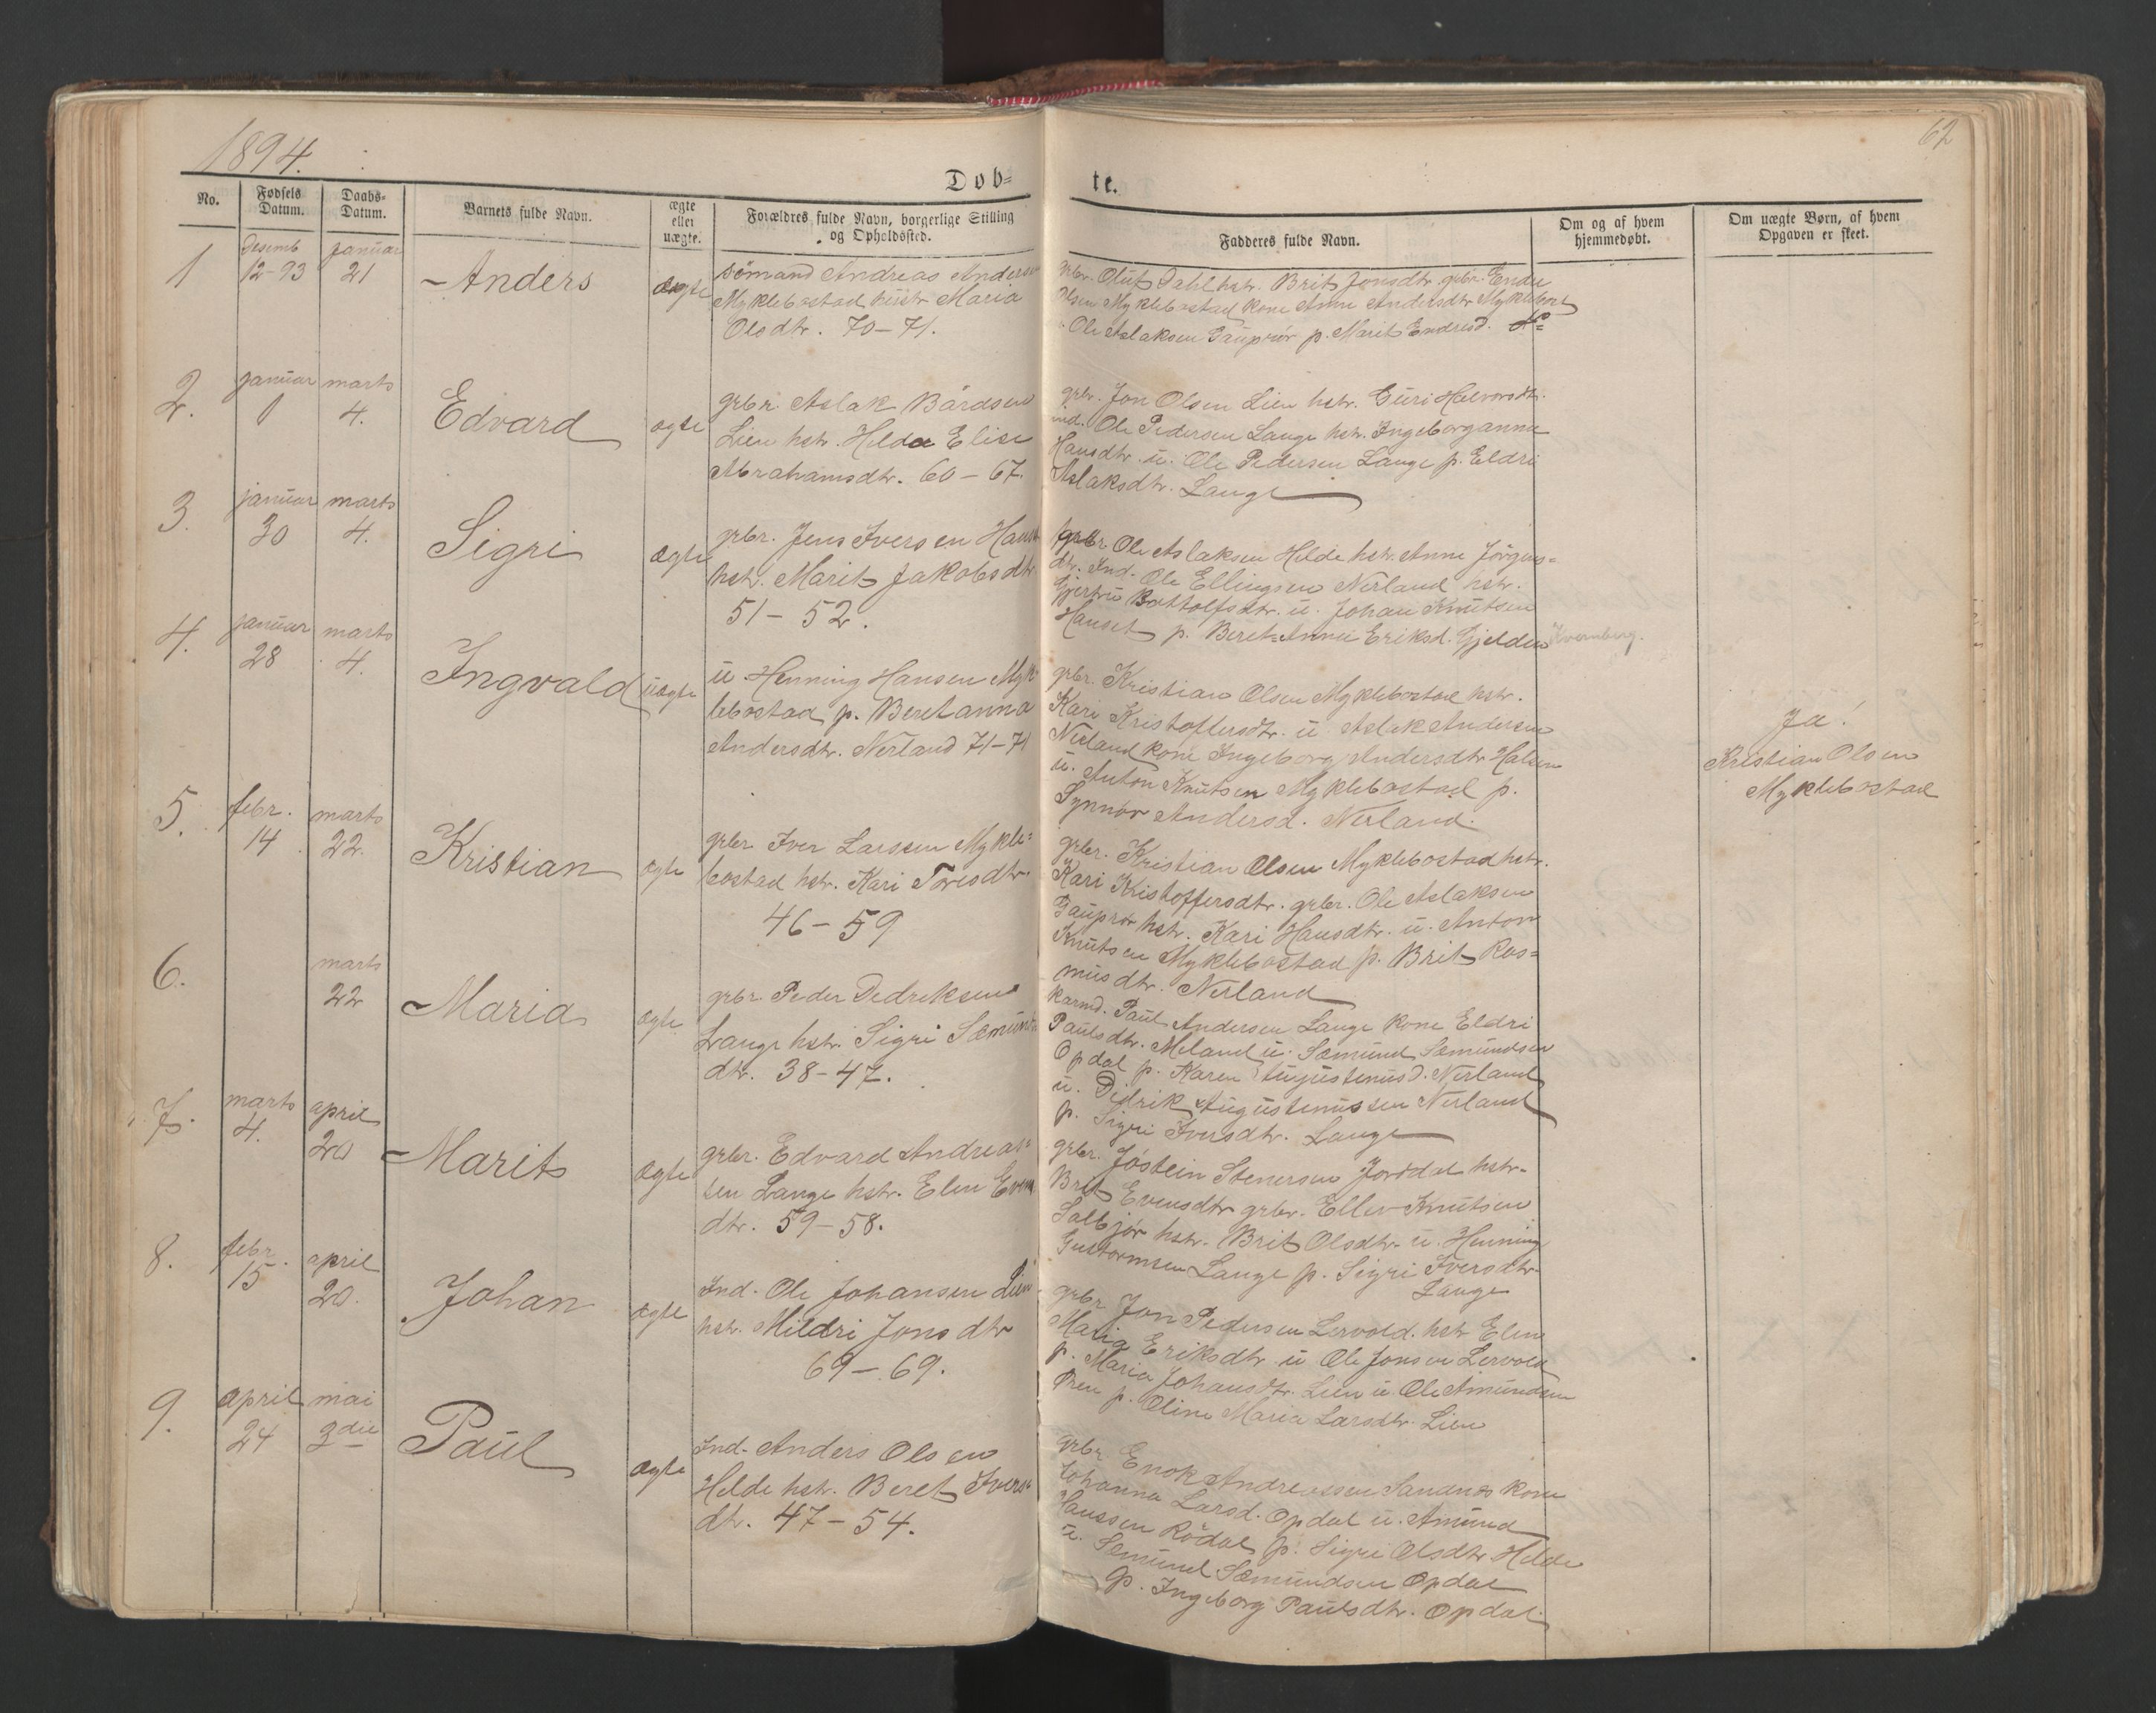 1894.
62
Døb=
te.
No.
Fødsels Datum.
Daabs= Datum.
Barnets fulde Navn.
ægte eller uægte.
Forældres fulde Navn, borgerlige Stilling og Opholdssted.
Fadderes fulde Navn.
Om og af hvem hjemmedøbt.
Om uægte Børn, af hvem Opgaven er skeet.
1
Desemb 12-93
januar 21
Anders
ægte
sömand Andreas Anders
Myklebostad hustr Maria
Olsdtr. 70-71.
Oluf Dahl hstr. Brit Jonsdtr. grbr. Endre
Olsen Myklebostad kone Anne Andersdtr Myklebost
Ole Aslaksen Gauprör p. Marit Endresd.
2.
januar 1
marts 4.
Edvard
ægte
grbr. Aslak Bårdsen
Lien hstr. Helda Elise
Abrahamsdtr. 60-67.
grbr. Jon Olsen Lien hstr. Guri Halvorsdtr.
ind. Ole Pedersen Lange hstr. Ingeborganna
Hansdtr. u. Ole Pedersen Lange p. Eldri
Aslaksdtr. Lange
3.
januar 30
marts 4.
Sigri
ægte
grbr. Jens Iversen Hauset
hstr. Marit Jakobsdtr
51-52.
grbr Ole Aslaksen Helde hstr. Anne Jörgens=
dtr. Ind. Ole Ellingsen Nerland hstr.
Gjertru Bottolfsdtr. u. Johan Knutsen
Hauset p. Beret=Anna Eriksd. Gjelden Kvernberg.
4.
januar 28
marts 4.
Ingvald
uægte
u. Henning Hansen Myk
lebostad p. Beretanna
Andersdtr. Nerland 71-71
grbr. Kristian Olsen Myklebostad hstr.
Kari Kristoffersdtr. u. Aslak Andersen
Nerland kone Ingeborg Andersdtr. Halsen
u. Anton Knutsen Myklebostad p.
Synnöv Andersd. Nerland.
Ja!
Kristian Olsen
Myklebostad
5.
febr. 14
marts 22.
Kristian
ægte
grbr. Iver Larssen Mykle=
bostad hstr. Kari Toresdtr.
46-59
grbr. Kristian Olsen Myklebostad hstr.
Kari Kristoffersdtr. grbr. Ole Aslaksen
Gauprör hstr. Kari Hansdtr. u. Anton
Knutsen Myklebostad p. Brit Ras=
musdtr. Nerland
6.
marts 22
Maria
ægte
grbr. Peder Dedreksen
Lange hstr. Sigri Sæmunds
dtr. 38-47.
karmd. Paul Andersen Lange kone Eldri
Paulsdtr. Meland u. Sæmund Sæmundsen
Opdal p. Karen Augustinusd. Nerland
u. Didrik Augustinussen Nerland
p. Sigri Iversdtr. Lange
7.
marts 4.
april 20
Marit
ægte
grbr. Edvard Andreas=
sen Lange hstr. Elen Evens
dtr. 59-58.
grbr. Jöstein Stenersen Jorddal hstr.
Brit Evensdtr grbr. Ellev Knutsen
Solbjör hstr. Brit Olsdtr. u. Henning
Guttormsen Lange p. Sigri Iversdtr.
Lange
8.
febr. 15
april 20.
Johan
ægte
Ind. Ole Johansen Lien
hstr. Mildri Jonsdtr
69-69.
grbr Jon Pedersen Lervold. hstr Elen
Maria Eriksdtr. u Ole Jonsen Lervold
p. Maria Johansdtr. Lien u. Ole Amundsen
Ören p. Oline Maria Larsdtr. Lien
9.
april 24
mai 3die
Paul
ægte
Ind. Anders Olsen
Helde hstr. Beret Ivers=
dtr. 47-54.
grbr Enok Andreassen Sandnes kone
Johanna Larsd. Opdal u. Amund
Hanssen Rödal p. Sigri Olsdtr Helde
u. Sæmund Sæmundsen Opdal
p. Ingeborg Paulsdtr. Opdal